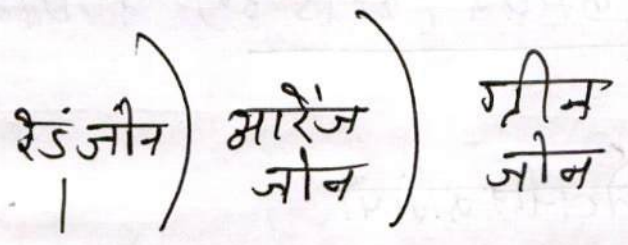 रेडं जोन) मारेंज जोन) ग्रीन जोन
|